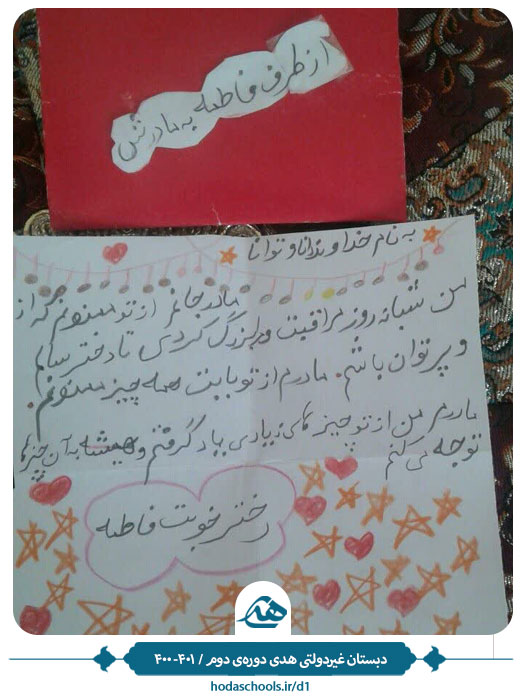 از طرف فاطمه به مادرش
به نام خداوند دانا و توانا
مادر جانم از تو ممنونم که از
من شبانه روز مراقبت و بزرگ کردی تا دختر سالم
و پرتوان باشم. مادرم از تو بابت همه چیز ممنونم.
مادرم من از تو چیز های زیادی یاد گرفتم و همیشه به آن چیزها
توجه می کنم
دختر خوبت فاطمه
هدی
دبستان غیردولتی هدی دوره‌ی دوم / ۴۰۱-۴۰۰
hodaschools.ir/d1